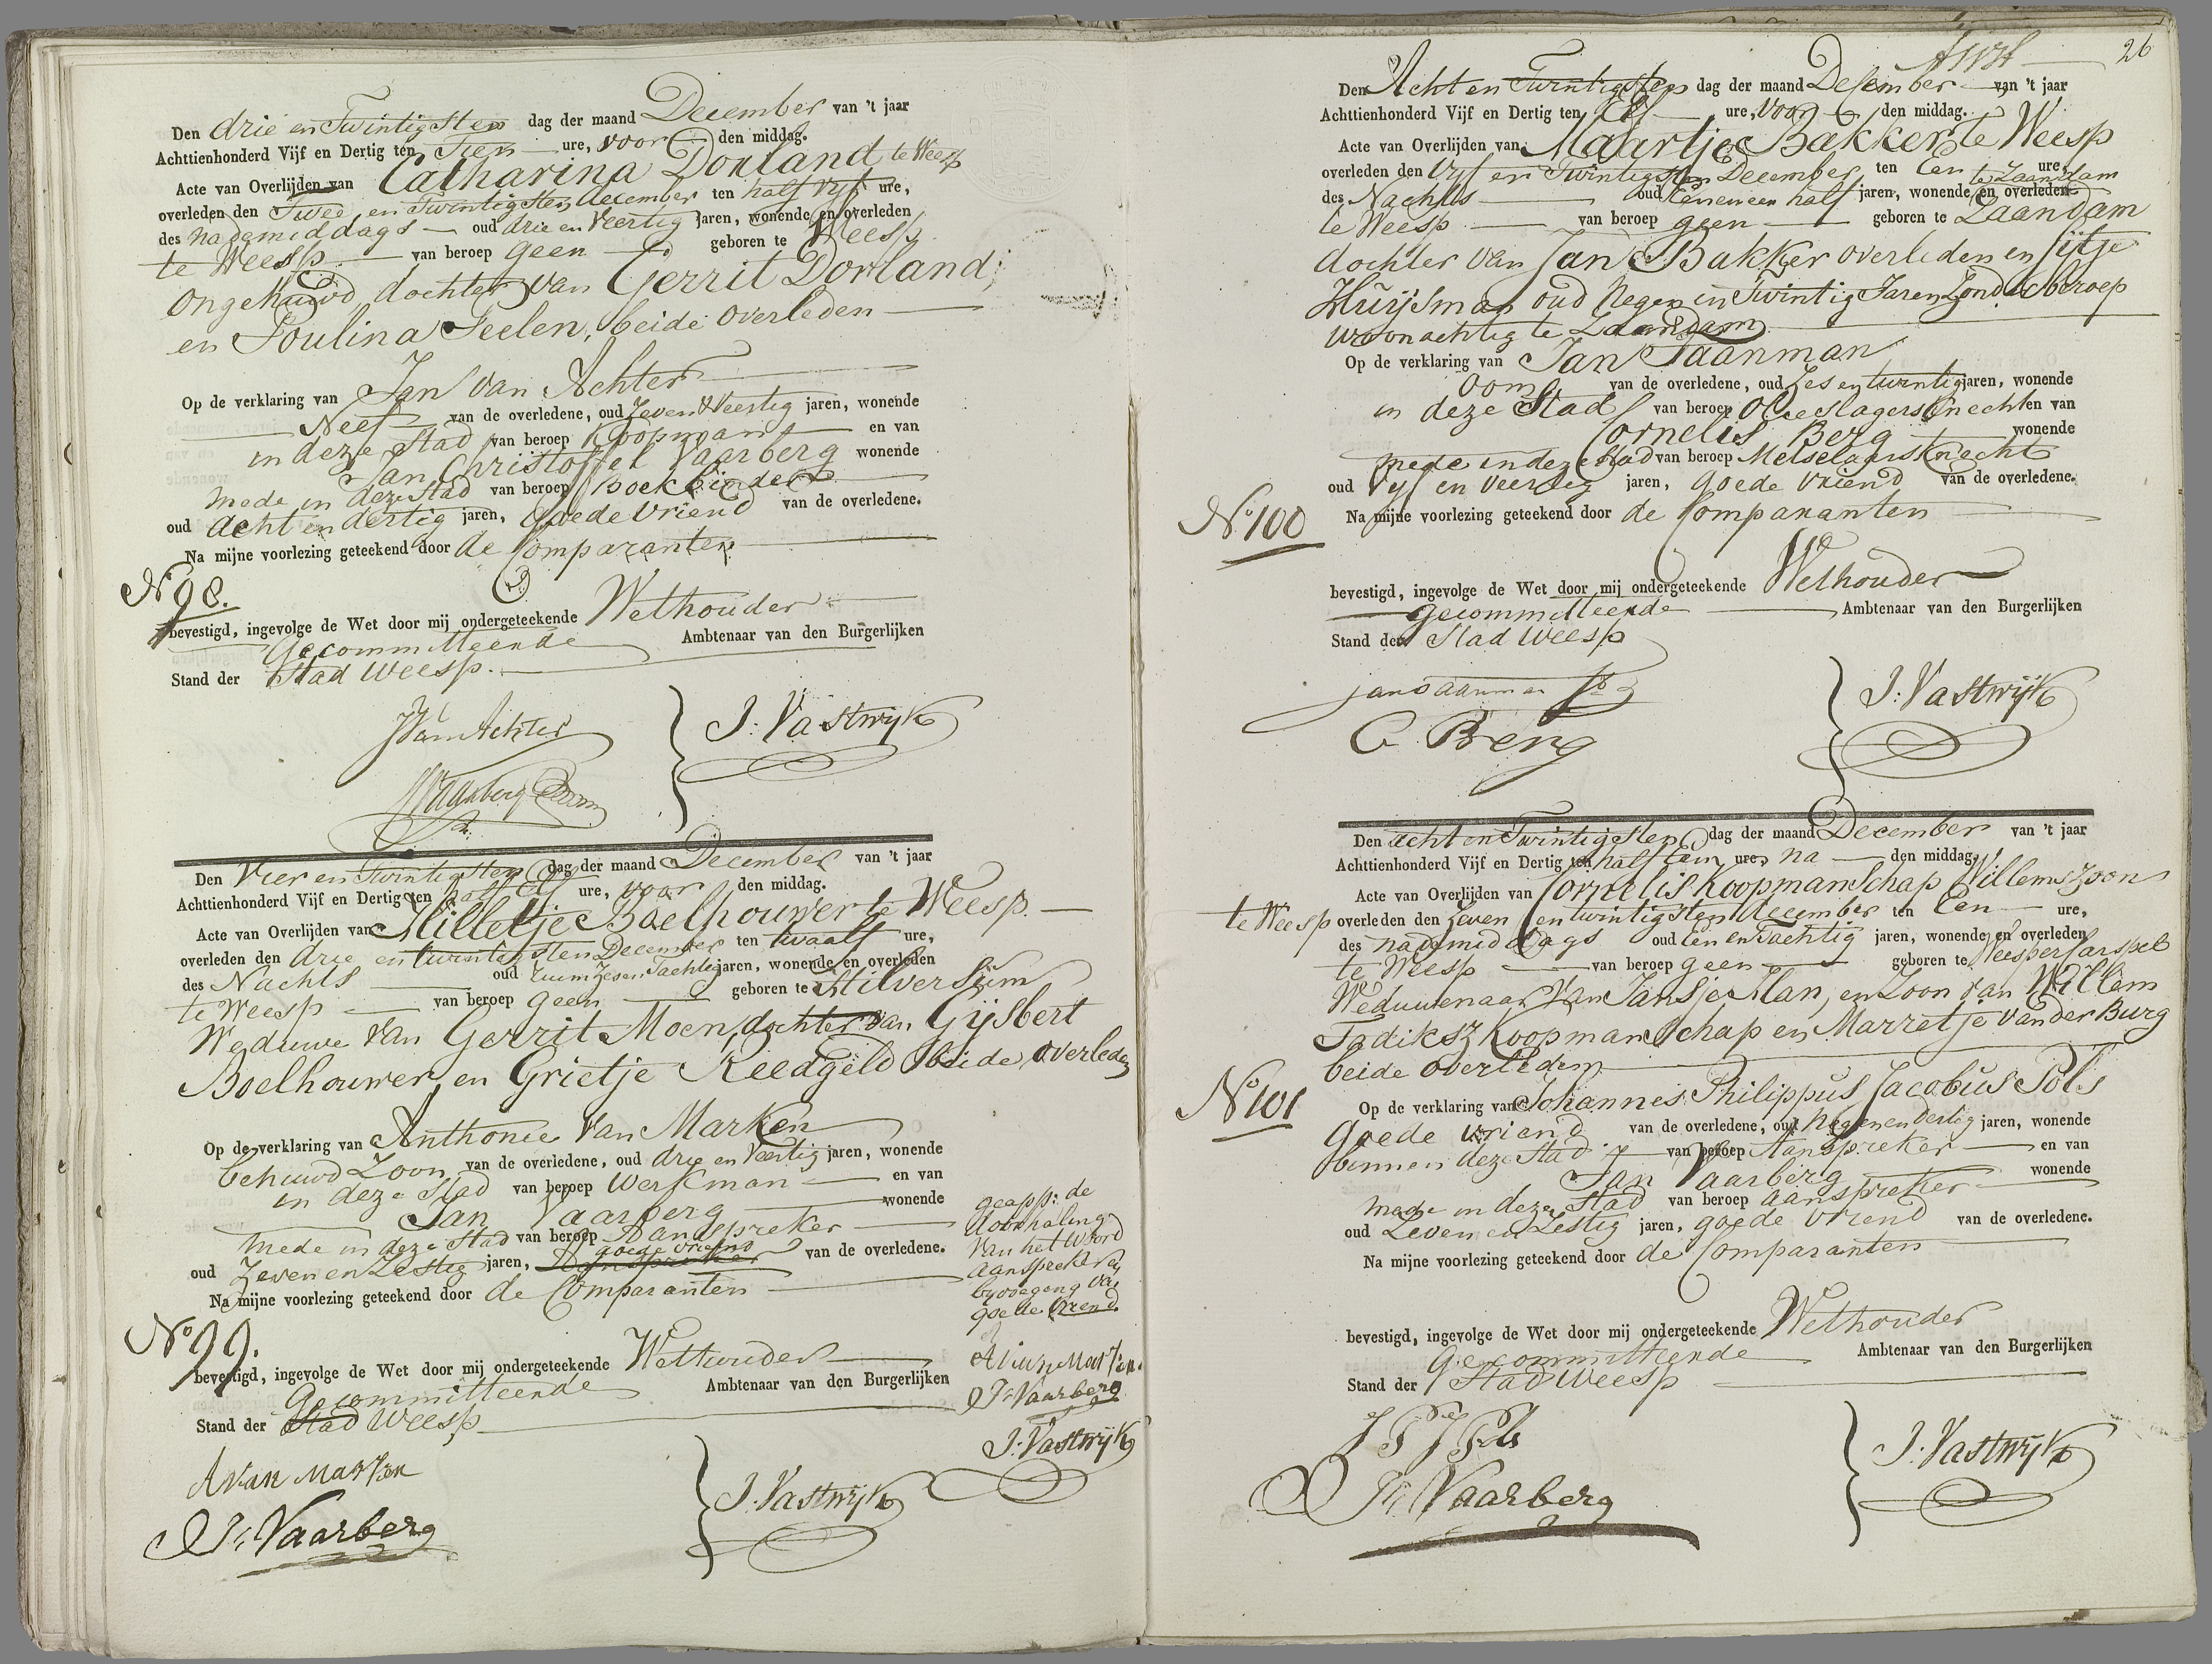 Den drie en Twintigsten dag der maand December van 't jaar
Achttienhonderd Vijf en Dertig ten Tien ure, voor den middag.
Acte van Overlijden van Catharina Dorland te Weesp
overleden den Twee en Twintigsten december ten half Vijf ure,
des nademiddags oud drie en Veertig jaren, wonende en overleden
te Weesp van beroep geen geboren te Weesp
ongehuwd, dochter van Gerrit Dorland,
en Poulina Teelen, beide overleden
Op de verklaring van Jan van Achter
Neef van de overledene, oud Zeven & Veertig jaren, wonende
in deze Stad van beroep Koopman en van
Jan Christoffel Vaarberg wonende
mede in deze Stad van beroep Boekbinder
oud acht en dertig jaren, Goede Vriend van de overledene.
Na mijne voorlezing geteekend door de Comparanten
No 98.
bevestigd, ingevolge de Wet door mij ondergeteekende Wethouder
Gecommitteerde Ambtenaar van den Burgerlijken
Stand der Stad Weesp.
J Van Achter
J. Vastwijk
Den Vier en Twintigsten dag der maand December van 't jaar
Achttienhonderd Vijf en Dertig ten half Elf ure, voor den middag.
Acte van Overlijden van Milletje Boelhouwer te Weesp.
overleden den drie en twintigsten December ten twaalf ure,
des Nachts oud ruim Zes en Tachtig jaren, wonende en overleden
te Weesp van beroep geen geboren te Hilversum
Weduwe van Gerrit Moen, dochter van Gijsbert
Boelhouwer, en Grietje Reedgeld beide overleden
Op de verklaring van Anthonie Van Marken
behuwd Zoon van de overledene, oud drie en Veertig jaren, wonende
in deze Stad van beroep Werkman en van
Jan Vaarberg wonende
mede in deze Stad van beroep Aanspreker
goede vriend
oud Zeven en Zestig jaren, Aanspreker van de overledene.
Na mijne voorlezing geteekend door de Comparanten
geapp: de
doorhaling
van het woord
aanspreker en
byvoegeng van
goede Vriend.
No 99.
bevestigd, ingevolge de Wet door mij ondergeteekende Wethouder
Gecommitteerde Ambtenaar van den Burgerlijken
Stand der Stad Weesp
A Van Marken
Jn Vaarberg
J. Vastwijk
A Van Marken
Jn Vaarberg
J. Vastwijk
26
Den Acht en Twintigsten dag der maand December van 't jaar
Achttienhonderd Vijf en Dertig ten Elf ure, voor den middag.
Acte van Overlijden van Maartje Bakker te Weesp
overleden den Vijf en Twintigsten December ten Een ure,
te Zaandam
des Nachts oud Een en een half jaren, wonende en overleden
te Weesp van beroep geen geboren te Zaandam
dochter van Jan Bakker overleden en Sijtje
Huijsman oud Negen en Twintig Jaren Zonder beroep
woonachtig te Zaandam
Op de verklaring van Jan Taanman
Oom van de overledene, oud Zes en twintig jaren, wonende
in deze Stad van beroep Olieslagersknecht en van
Cornelis Berg wonende
mede in deze Stad van beroep Metselaars Knecht
oud Vijf en Veertig jaren, goede Vriend van de overledene.
Na mijne voorlezing geteekend door de Comparanten
No 100
bevestigd, ingevolge de Wet door mij ondergeteekende Wethouder
gecommitteerde Ambtenaar van den Burgerlijken
Stand der Stad Weesp
jan taanman
C. Berg
J. Vastwijk
Den acht en Twintigsten dag der maand December van 't jaar
Achttienhonderd Vijf en Dertig ten half Een ure, na den middag.
Acte van Overlijden van Cornelis Koopmanschap Willemszoon
te Weesp overleden den Zeven en twintigsten december ten Een ure,
des nademiddags oud Een en Tachtig jaren, wonende en overleden
te Weesp van beroep geen geboren te Weesperkarspel
Weduwenaar Van Jansje Man, en Zoon van Willem
Fadiksz Koopmanschap en Marretje van der Burg
beide overleden
No 101
Op de verklaring van Johannes Philippus Jacobus Pols
Goede vriend van de overledene, oud Negen en Dertig jaren, wonende
binnen deze Stad van beroep Aanspreker en van
Jan Vaarberg wonende
mede in deze Stad van beroep aanspreker
oud Zeven en Zestig jaren, goede Vriend van de overledene.
Na mijne voorlezing geteekend door de Comparanten
bevestigd, ingevolge de Wet door mij ondergeteekende Wethouder
Gecommitteerde Ambtenaar van den Burgerlijken
Stand der Stad Weesp
J P J Pols
Jn Vaarberg
J. Vastwijk